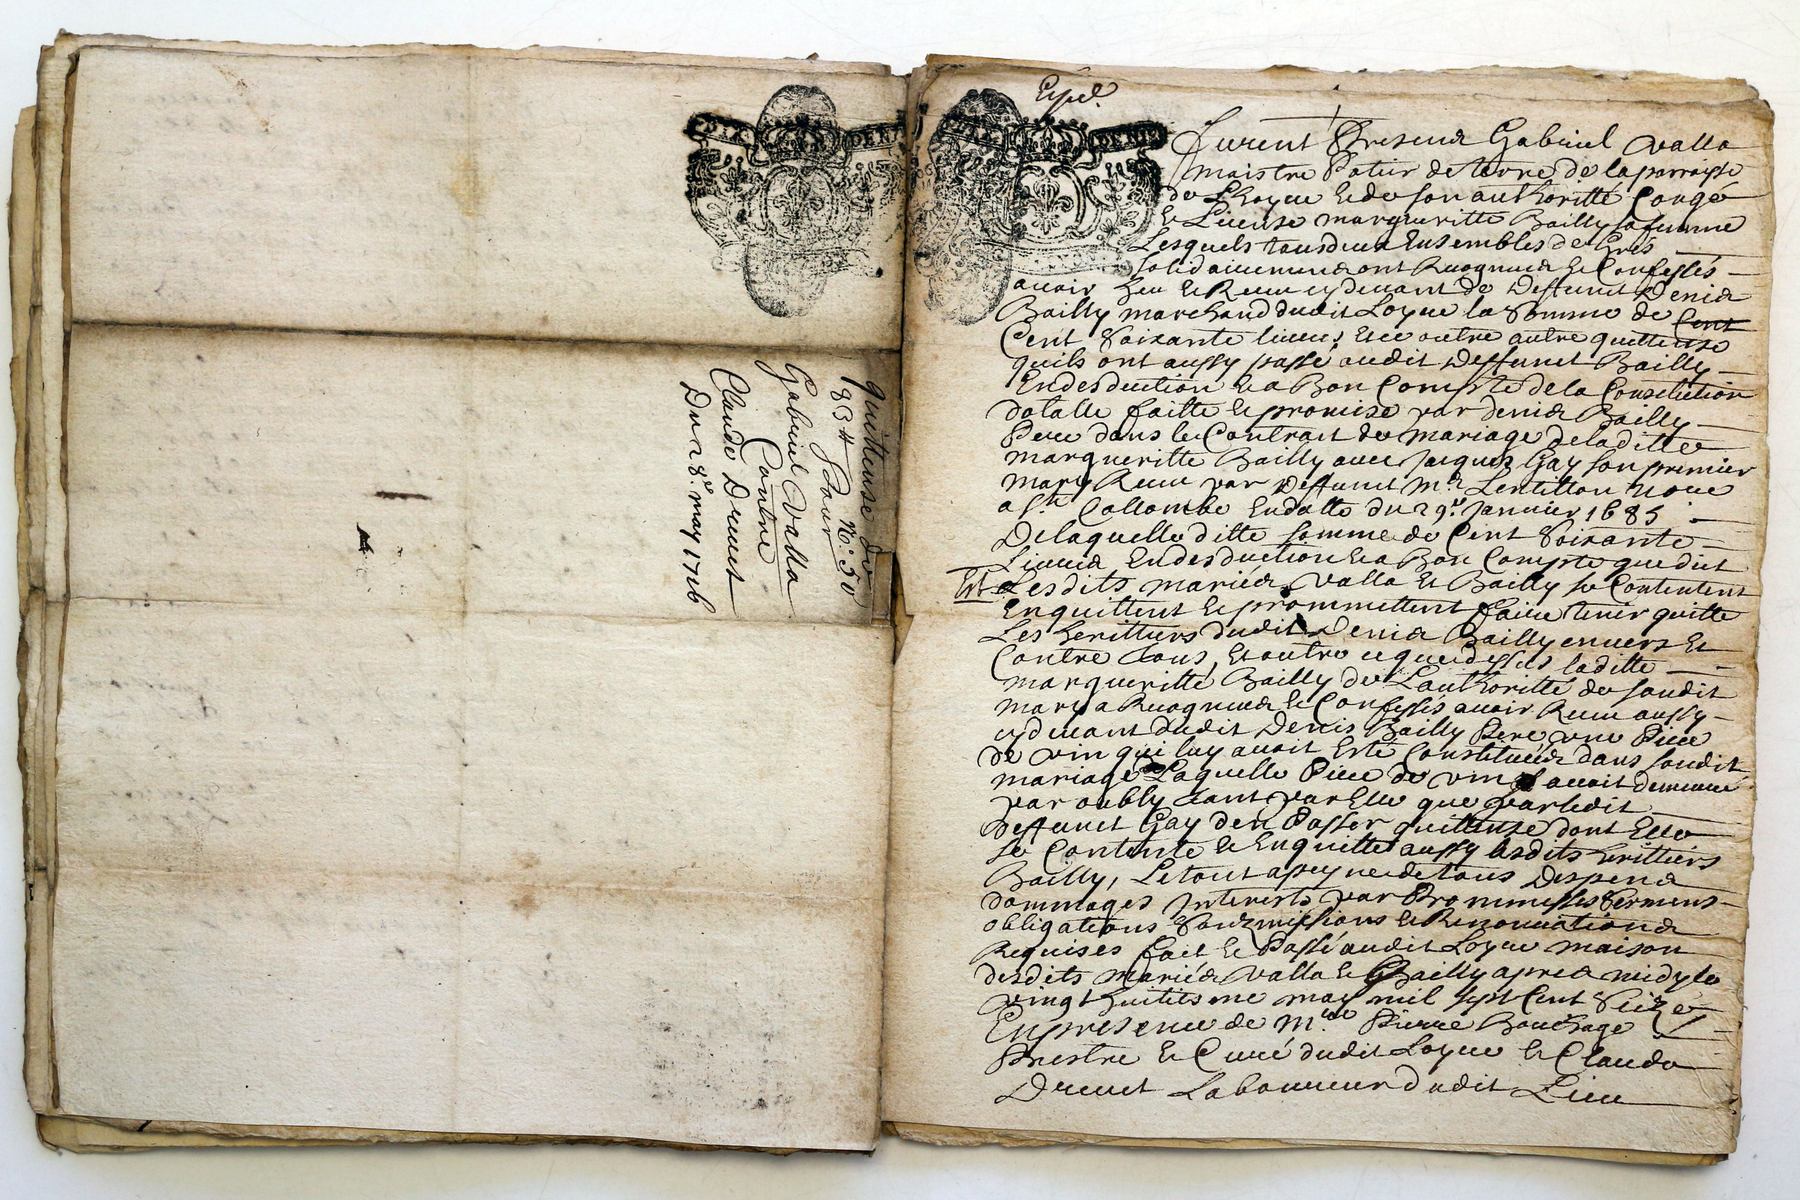 quittense de
83# N.° 50
Pour
Gabriel Valla
Contre
Claude Drevet
Du 28.e may 1716
Expé.
DIX DENIERS
Furent Presens Gabriel Valla
maistre Potier de terre de la parroisse
de Loyse et de son authoritté Congé
et License margueritte Bailly sa femme
Lesquels tous deux Ensembles de Grés
solidairement ont Recogneus et Confessés
avoir heu et Receu cy devant de Deffunct Denis
Bailly marchand dudit Loyse la Somme de Cent
Cent Soixante livres et ce outre autre quittense
quils ont aussy passé audit Deffunct Bailly
En desduction et a Bon Compte de la Constitution
dotalle faitte et promise par denis Bailly
Pere dans le Contrait de mariage de laditte
margueritte Bailly avec Jacques Gay son premier
mary Receu par Deffunct Mr. Lentillon
a Ste Collombe En datte du 29.e Janvier 1685
De laquelle ditte somme de Cent Soixante
Livres En desduction et a Bon Compte que dit
Est Lesdits mariés Valla et Bailly se Contentent
En quittent et prommettent faire tenir quitte
Les heritiers dudit Denis Bailly envers et
Contre tous, Et outre ce que dessus laditte
margueritte Bailly de Lauthoritté de sondit
mary a Recogneus et Confessés avoir Receu aussy
cy devant dudit Denis Bailly Pere, une Piece
de vin qui luy avoit Esté Constituée dans sondit
mariage Laquelle Piece de vin avoit demeuré
par oubly tant par Elle que par ledit
deffunct Gay den Passer quittense dont Elle
se Contente et En quitte aussy lesdits heritiers
Bailly, Le tout a peyne de tous Despens
dommages Interests par Prommesses Sermens
obligations Soubmissions et Renonciations
Requises fait et Passé audit Loyse maison
desdits Mariés Valla et Bailly apres midy le
vingt huitiesme may mil sept Cent Seize
En presence de M.re Pierre Bouchage
Prestre et Curé dudit Loyse et Claude
Drevet Laboureur dudit Lieu